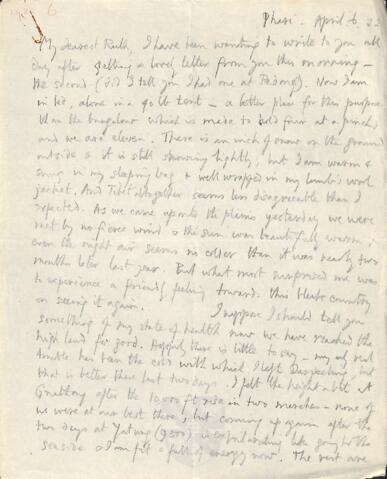 Phari. April 6. 22
My dearest Ruth, I have been wanting to write to you all
day after getting a lovely letter from you this morning -
the second (did I tell you I had one at Pedong). Now I am
in bed, alone in a 40 lb tent - a better place for this purpose
than the bungalow which is made to hold four at a pinch
and we are eleven. There is an inch of snow on the ground
outside & it is still snowing lightly; but I am warm &
snug in my sleeping bag & well wrapped in my lamb's wool
jacket. And Tibet altogether seems less disagreeable than I
expected. As we came up onto the plains yesterday we were
met by no fierce wind & the sun was beautifully warm;
even the night air seems no colder than it was nearly two
months later last year. But what most surprised me was
to experience a friendly feeling toward this bleak country
on seeing it again. I suppose I should tell you
something of my state of health now we have reached the
high land for good. Happily there is little to say - my only real
trouble has been the cold with which I left Darjeeling, but
that is better these last two days. I felt the height a bit at
Gnatong after the 10,000 ft rise in two marches - none of
we were at our best there; but coming up again after the
two days at Yatung (9500) is exhilarating like going to the
seaside & I am fit & full of energy now. The rest are